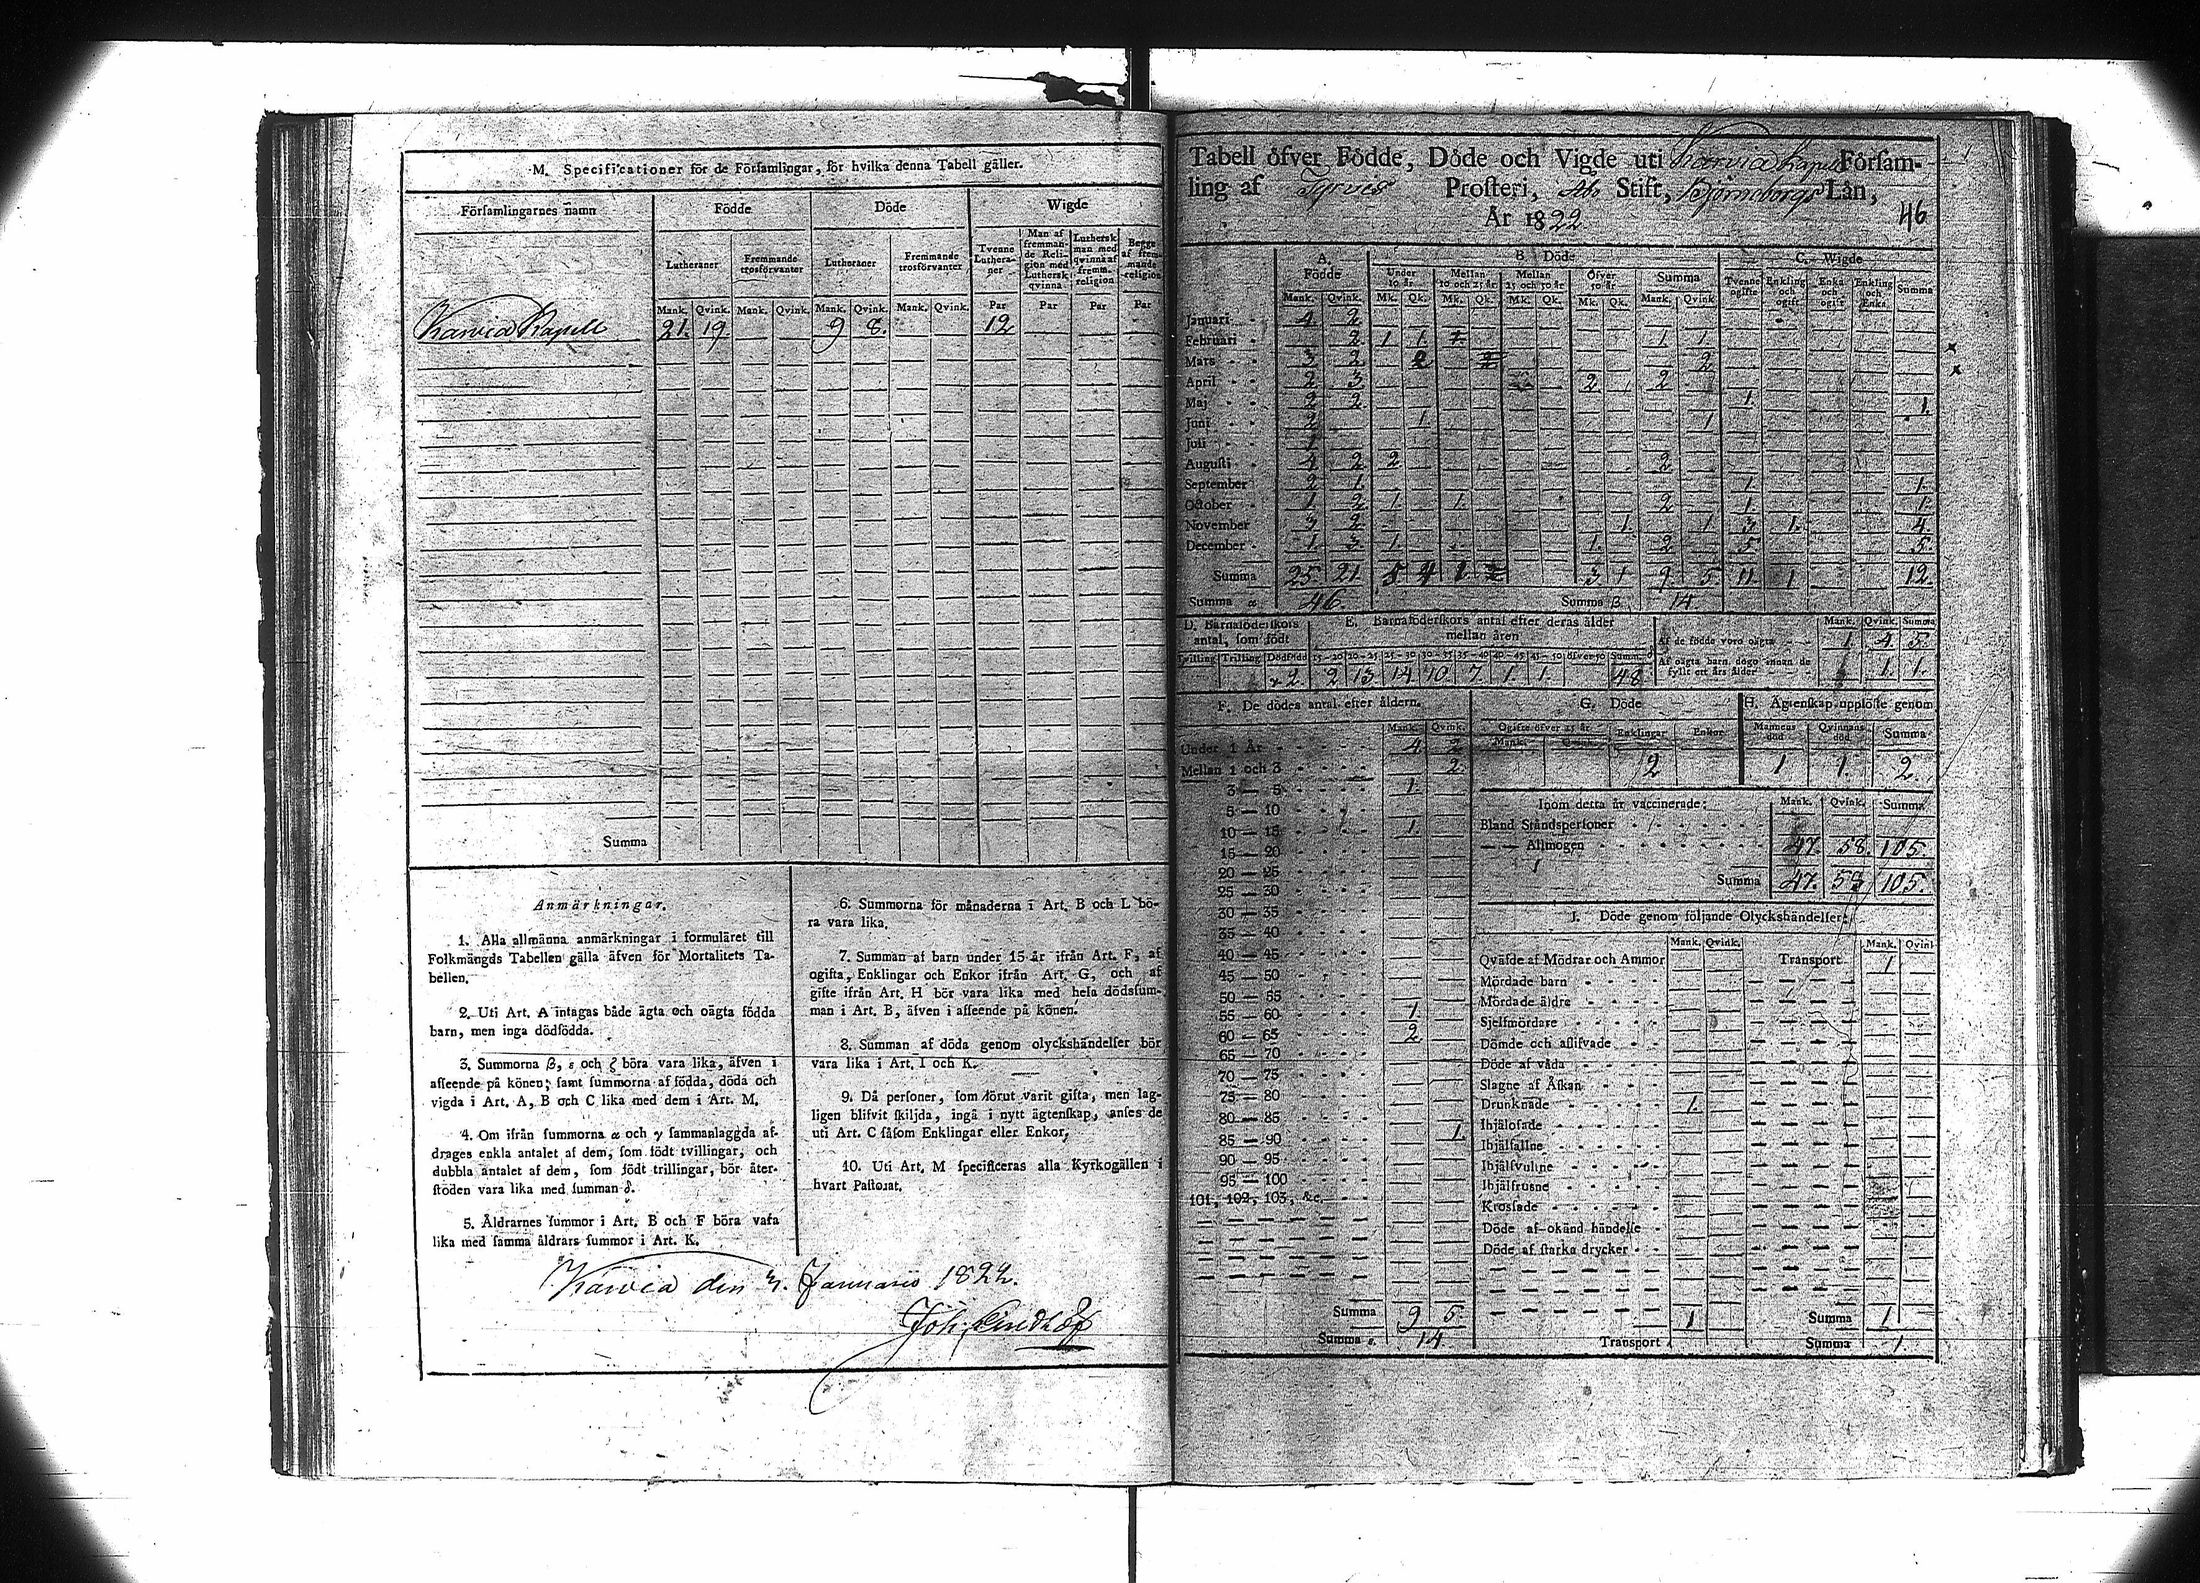 M. Specificationer för de Församlingar, för hvilka denna Tabell gäller.
Församlingarnes namn
Födde
Döde
Wigde
Lutheraner
Fremmande trosförvanter
Lutheraner
Fremmande trosförvanter
Tvenne Lutheraner
Man af fremmande Religion med Luthersk qvinna
Luthersk man med qvinna af fremm. religion
Begge af fremmande religion
Mank. Qvink. Mank. Qvink. Mank. Qvink. Mank. Qvink. Par Par Par Par
Karvia Kapell 21. 19 9 8. 12
Summa
Anmärkningar.
1. Alla allmänna anmärkningar i formuläret till
Folkmängds Tabellen gälla äfven för Mortalitets Ta-
bellen.
2. Uti Art. A intagas både ägta och oägta födda
barn, men inga dödfödda.
3. Summorna β, ε och ζ böra vara lika, äfven i
afseende på könen; samt summorna af födda, döda och
vigda i Art. A, B och C lika med dem i Art. M.
4. Om ifrån summorna α och γ sammanlaggda af-
drages enkla antalet af dem, som födt tvillingar, och
dubbla antalet af dem, som födt trillingar, bör åter-
stoden vara lika med summan δ.
5. Åldrarnes summor i Art. B och F böra vara
lika med samma åldrars summor i Art. K.
6. Summorna för månaderna i Art. B och L bö-
ra vara lika.
7. Summan af barn under 15 år ifrån Art. F, af
ogifta, Enklingar och Enkor ifrån Art. G, och af
gifte ifrån Art. H bör vara lika med hela dödssum-
man i Art. B, äfven i afseende på könen.
8. Summan af döda genom olyckshändelser bör
vara lika i Art. I och K.
9. Då personer, som förut varit gifta, men lag-
ligen blifvit skiljda, ingå i nytt ägtenskap, anses de
uti Art. C såsom Enklingar eller Enkor.
10. Uti Art. M specificeras alla Kyrkogällen i
hvart Pastorat.
Karvia den 3. Januario 1822.
Joh.
Tabell öfver Födde, Döde och Vigde uti Karvia Kapell Församling
ling af Tyrvis Prosteri, Åbo Stift, Björneborgs Län,
År 1822
46
A. Födde
B. Döde
C. Wigde
Under 10 år
Mellan 10 och 25 år
Mellan 25 och 50 år
Öfver 50 år
Summa
Tvenne ogifte
Enkling och ogift
Enka och ogift
Enkling och Enka
Summa
Mank. Qvink. Mk. Qk. Mk. Qk. Mk. Qk. Mk. Qk. Mank. Qvink.
Januari 4 2
Februari 2 1 1 1 1
Mars 3 2 2 2
April 2 3 2 2
Maj 2 2 1 1.
Juni 2 1 1
Juli 1
Augusti 4 2 2 2
September 2 1 1 1.
October 1 2 1 1 2 1 1
November 3 2 1 1 3 1. 4.
December 1 3 1. 1. 2 5 5.
Summa 25. 21. 5 4 1 3 1 9 5 11 1 12.
Summa α 46. Summa β 14.
D. Barnaföderskors antal, som födt
E. Barnaföderskors antal efter deras ålder mellan åren
Mank. Qvink. Summa
Af de födde voro oägta 1. 4. 5
Af oägta barn dogo innan de fyllt ett års ålder 1. 1.
Tvilling Trilling Dödfödd 15-20 20-25 25-30 30-35 35-40 40-45 45-50 öfver 50 Summa δ
2 2 13 14 10 7 1. 1. 48
F. De dödes antal efter åldern.
Mank. Qvink.
Under 1 År 4 2
Mellan 1 och 3 2
3 — 5 1.
5 — 10
10 — 15 1.
15 — 20
20 — 25
25 — 30
30 — 35
35 — 40
40 — 45
45 — 50
50 — 55
55 — 60 1.
60 — 65 2
65 — 70
70 — 75
75 — 80
80 — 85
85 — 90 1.
90 — 95
95 — 100
101, 102, 103, &c.
Summa 9 5
Summa ε. 14.
G. Döde
Ogifte öfver 15 år
Enklingar
Enkor
Mank. Qvink.
2
H. Ägtenskap upplöste genom
Mannens död
Qvinnans död
Summa
1 1. 2.
Inom detta år vaccinerade: Mank. Qvink. Summa
Bland Ståndspersoner
— — Allmogen 47. 58. 105.
Summa 47. 58 105.
I. Döde genom följande Olyckshändelser:
Mank. Qvink. Mank. Qvink
Qväfde af Mödrar och Ammor Transport 1
Mördade barn
Mördade äldre
Sjelfmördare
Dömde och aflifvade
Döde af våda
Slagne af Åskan
Drunknade 1.
Ihjälosade
Ihjälfallne
Ihjälsvultne
Ihjälfrusne
Krossade
Döde af okänd händelse
Döde af starka drycker
1 Summa 1
Transport Summa 1.